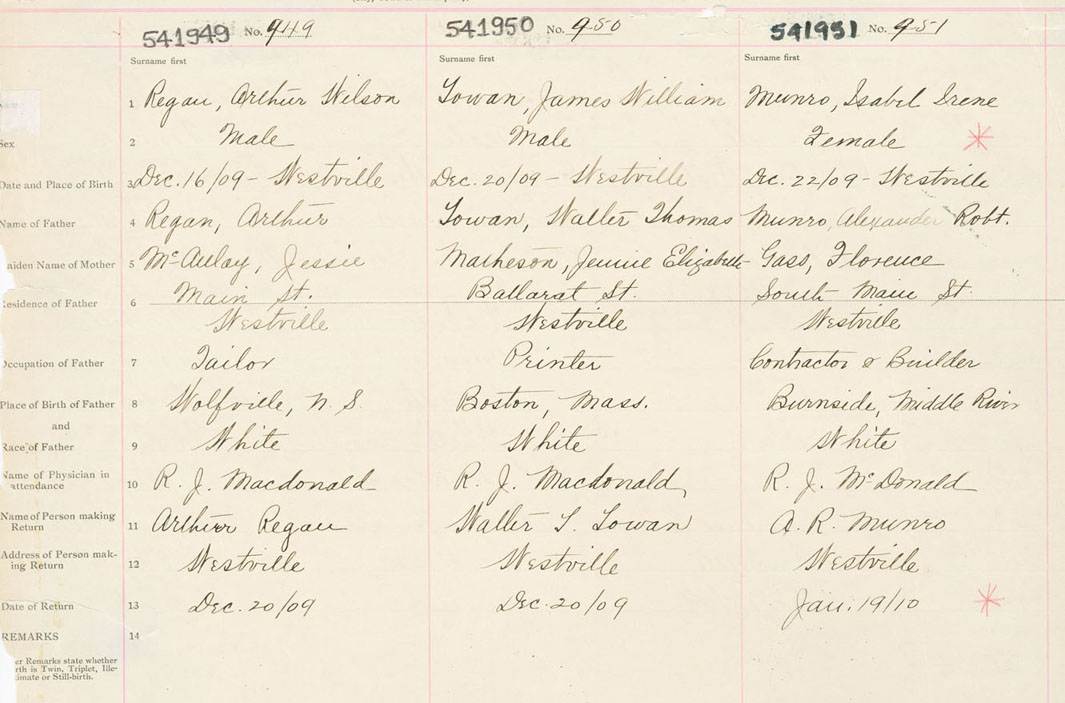 541949 No. 949
541950 No. 950
541951 No. 951
Surname first
Surname first
Surname first
1 Regan, Arthur Wilson
Towan, James William
Munro, Isabel Irene
Sex 2 Male
Male
Female
Date and Place of Birth 3 Dec. 16/09 - Westville
Dec. 20/09 - Westville
Dec. 22/09 - Westville
Name of Father 4 Regan, Arthur
Towan, Walter Thomas
Munro, Alexander Robt.
aiden Name of Mother 5 McAulay, Jessie
Matheson, Jennie Elizabeth
Gass, Florence
Residence of Father 6 Main St.
Westville
Ballarat St.
Westville
South Main St.
Westville
Occupation of Father 7 Tailor
Printer
Contractor & Builder
Place of Birth of Father 8 Wolfville, N. S.
Boston, Mass.
Burnside, Middle River
and
Race of Father 9 White
White
White
Name of Physician in
attendance 10 R. J. Macdonald
R. J. Macdonald
R. J. McDonald
Name of Person making
Return 11 Arthur Regan
Walter T. Towan
A. R. Munro
Address of Person mak-
ing Return 12 Westville
Westville
Westville
Date of Return 13 Dec. 20/09
Dec. 20/09
Jan. 19/10
REMARKS 14
er Remarks state whether
rth is Twin, Triplet, Ille-
imate or Still-birth.